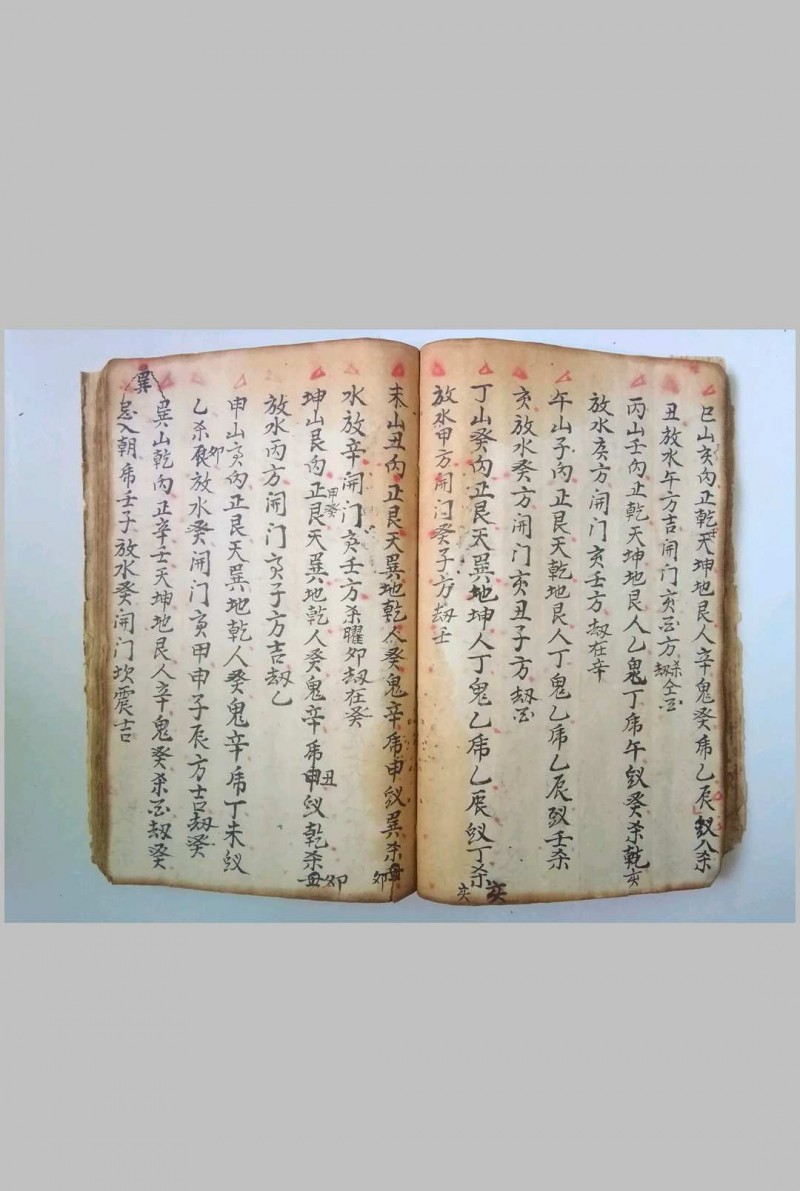 巳山亥向正乾天坤地艮人辛鬼癸乕乙辰蚁八杀
丑放水午方吉開门亥方杀劫仝
丙山壬向正乾天坤地艮人乙鬼丁乕午蚁癸杀乾亥
放水亥方開门亥壬方劫在辛
午山子向正艮天乾地艮人丁鬼乙乕乙辰蚁壬杀
亥放水癸方開门亥丑子方劫
丁山癸向正艮天巽地坤人丁鬼乙乕乙辰蚁丁杀亥亥
放水甲方開门癸子方劫壬
未山丑向正艮天巽地乾人癸鬼辛乕申蚁巽杀卯
水放辛開门亥壬方杀曜卯劫在癸
坤山艮向正甲癸艮天巽地乾人癸鬼辛乕申丑蚁乾杀卯
放水丙方開门亥子方吉劫乙
申山亥向正艮天巽地乾人癸鬼辛乕丁未蚁
乙杀卯放水癸開门亥甲申子辰方吉劫癸
巽山乾向正辛壬天坤地艮人辛鬼癸杀劫癸
巽
忌入朝乕壬子放水癸開门坎震吉